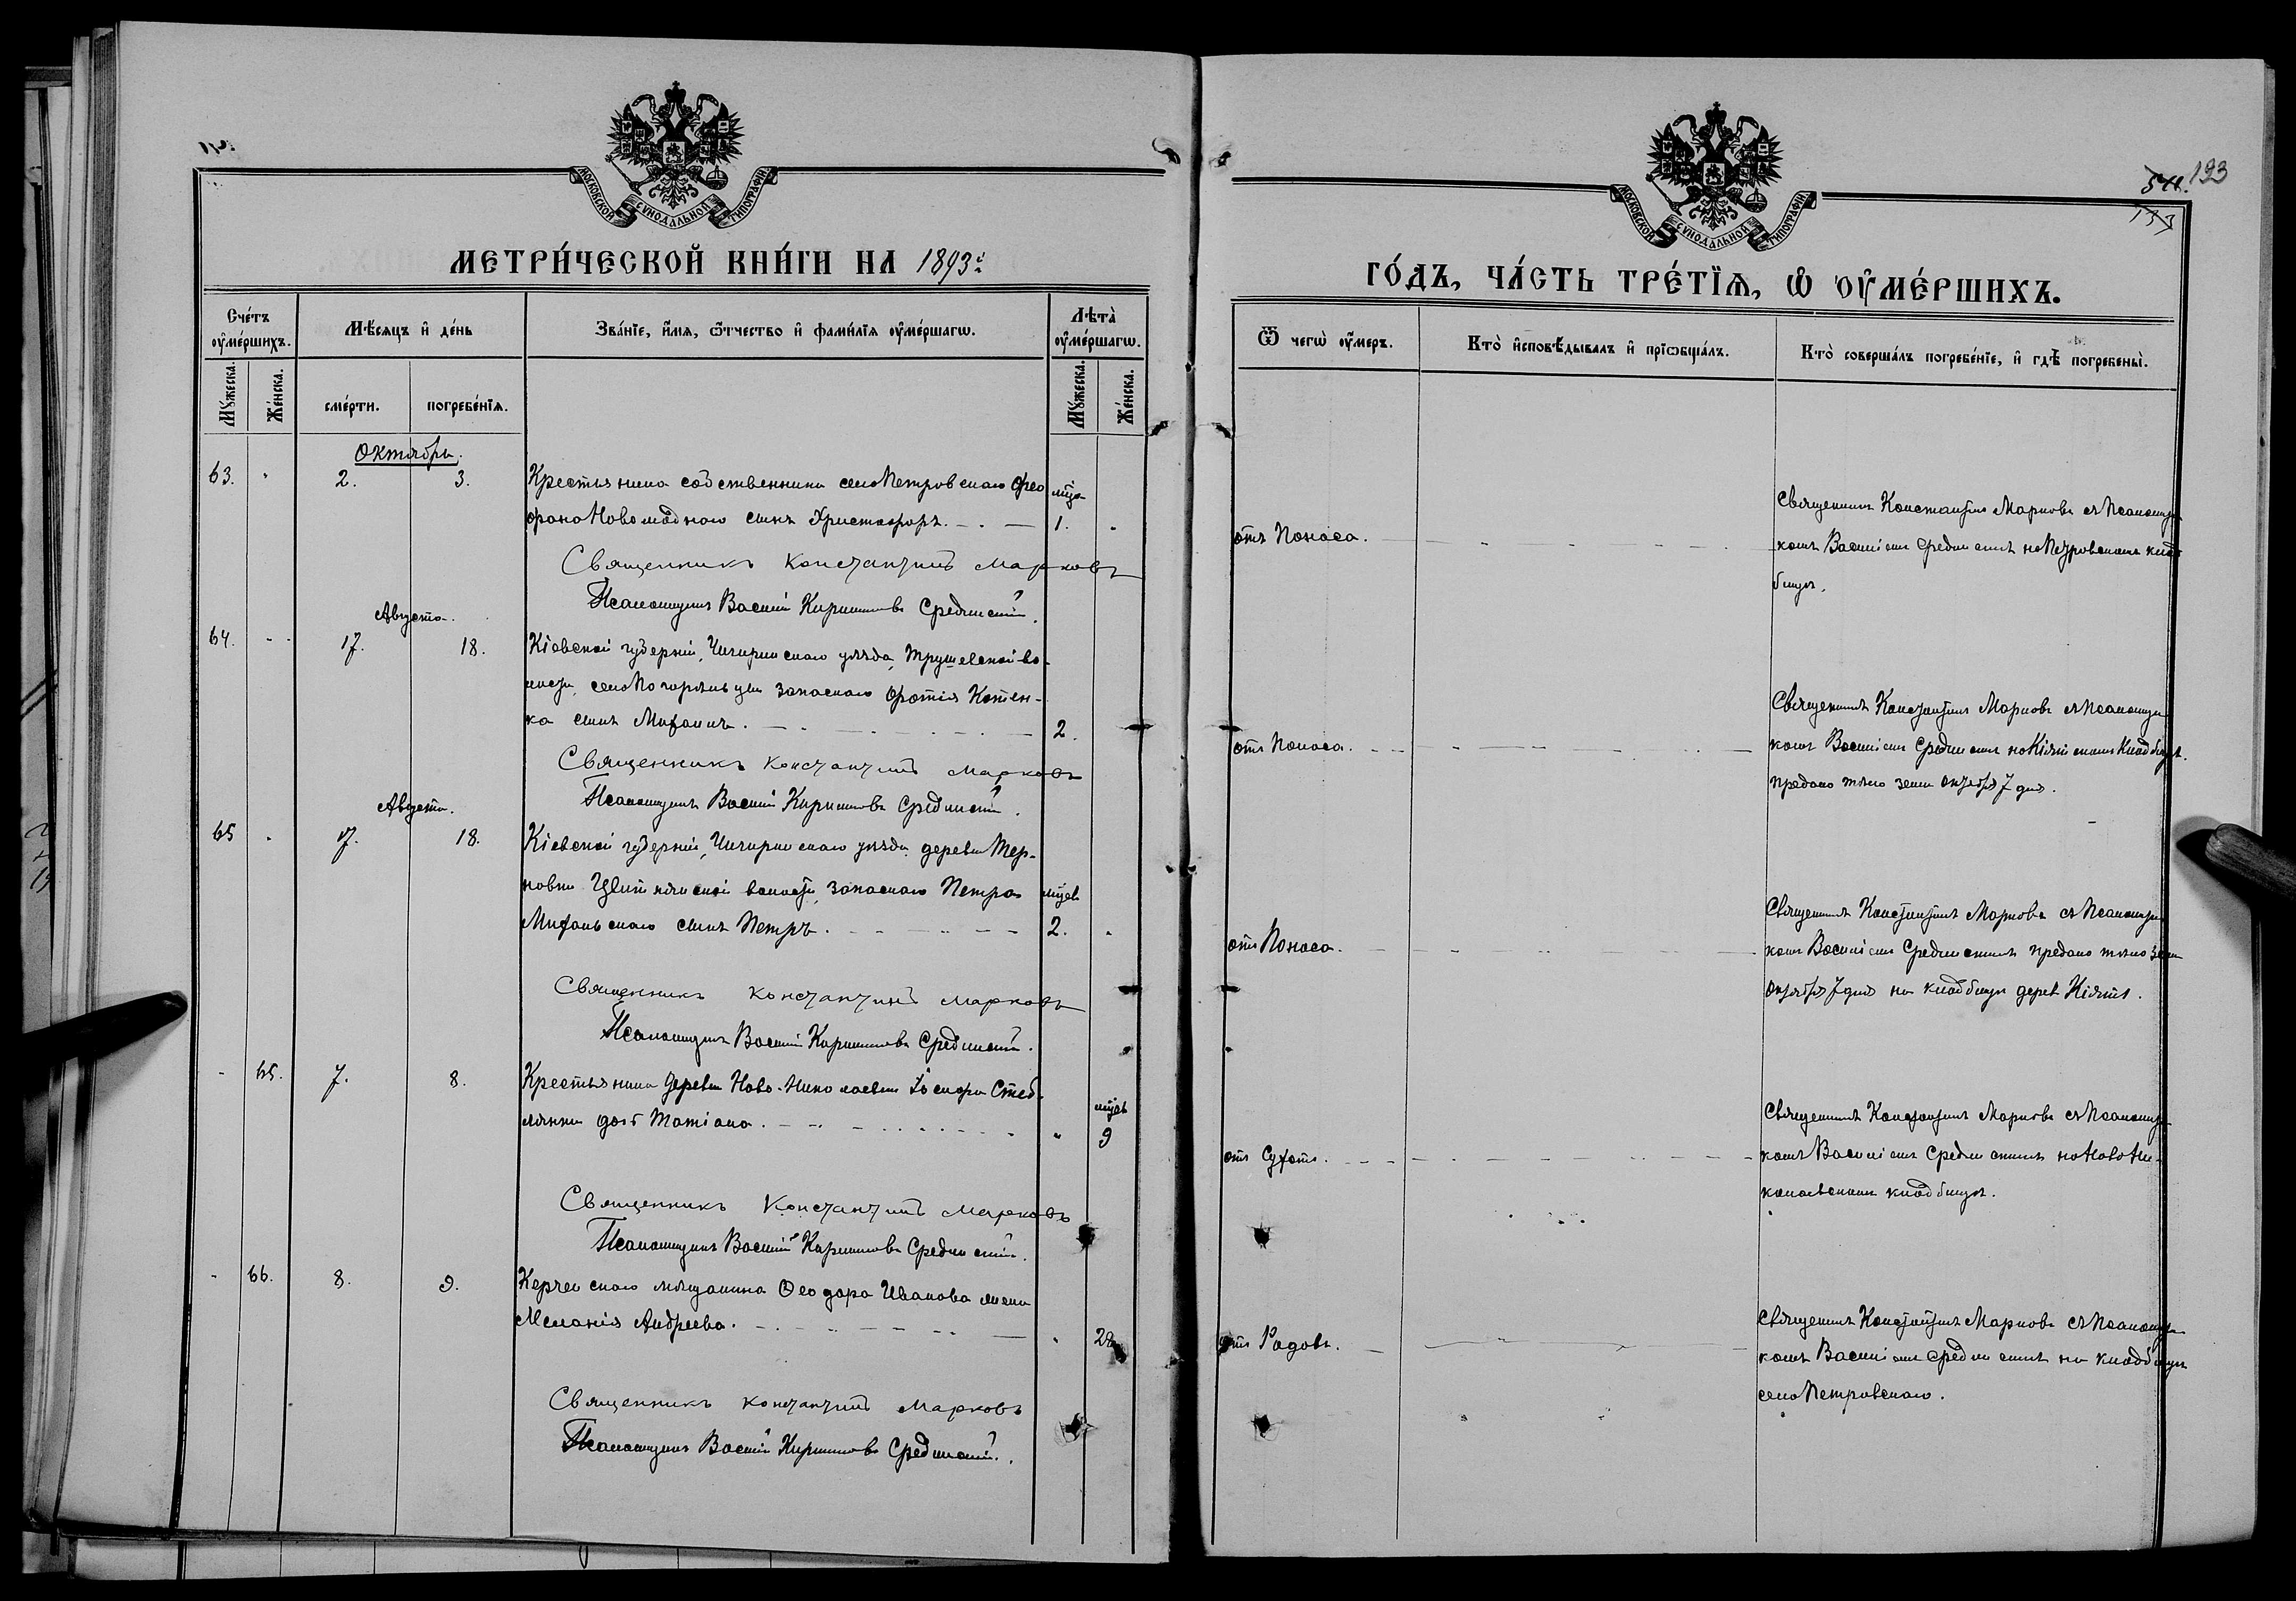 МОСКОВСКОЙ СѴНОДАЛЬНОЙ ТИПОГРАФІИ
МЕТРИ́ЧЕСКОЙ КНИ́ГИ НА 1893й
Сче́тъ оу҆ме́ршихъ.
Мѣ́сяцъ и҆ де́нь
Зва́нїе, и҆́мѧ, ѻ҆́тчество и҆ фами́лїѧ оу҆ме́ршагѡ.
Лѣ́та оу҆ме́ршагѡ.
Мꙋ́жеска.
Же́нска.
сме́рти.
погребе́нїѧ.
Мꙋ́жеска.
Же́нска.
Октябрь.
63. " 2. 3. Крестьянина собственника села Петровскаго Фео
фана Новоладнаго сынъ Христофоръ. 1. "
Священникъ Константинъ Марковъ
Псаломщикъ Василій Кирилловъ Срединскій.
Августа.
64. - - 17. 18. Кіевской губерніи, Чигиринскаго уѣзда, Трушевской во-
лости, села Погорѣльцы запаснаго Фотія Котен-
ка сынъ Михаилъ. 2.
Священникъ Константинъ Марковъ
Псаломщикъ Василій Кирилловъ Срединскій.
Августа.
65 " 17. 18. Кіевской губерніи, Чигиринскаго уѣзда деревни Тер-
новки Цвитнянской волости, запаснаго Петра мѣсяц
Михальскаго сынъ Петръ. 2. "
Священникъ Константинъ Марковъ
Псаломщикъ Василій Кирилловъ Срединскій.
- 65. 7. 8. Крестьянина деревни Ново-Николаевки Іосифа Стеб-
лянки дочь Татіана. " 9
Священникъ Константинъ Марковъ
Псаломщикъ Василій Кирилловъ Срединскій.
- 66. 8. 9. Керченскаго мѣщанина Ѳеодора Иванова жена
Меланія Андреева. "
Священникъ Константинъ Марковъ
Псаломщикъ Василій Кирилловъ Срединскій.
МОСКОВСКОЙ СѴНОДАЛЬНОЙ ТИПОГРАФІИ
193
133
ГО́ДЪ, ЧА́СТЬ ТРЕ́ТЇѦ, Ѡ҆ ОУ҆МЕ́РШИХЪ.
Ѿ чегѡ̀ оу҆́меръ.
Кто̀ и҆сповѣ́дывалъ и҆ прїѡбща́лъ.
Кто̀ соверша́лъ погребе́нїе, и҆ гдѣ̀ погребены̀.
отъ Поноса.
Священникъ Константинъ Марковъ съ Псаломщи
комъ Василіемъ Срединскимъ на Петровскомъ клад
бищѣ.
отъ Поноса.
Священникъ Константинъ Марковъ съ Псаломщи
комъ Василіемъ Срединскимъ на Кіятскомъ Кладбищѣ.
предано тѣло земли октября 7 дня.
отъ Поноса.
Священникъ Константинъ Марковъ съ Псаломщи
комъ Василіемъ Срединскимъ предано тѣло земли
октября 7 дня на кладбищѣ дерев Кіятъ.
отъ Сухотъ.
Священникъ Константинъ Марковъ съ Псаломщи
комъ Василіемъ Срединскимъ на Ново Ни-
колаевскомъ кладбищѣ.
отъ Родовъ.
Священникъ Константинъ Марковъ съ Псаломщи
комъ Василіемъ Срединскимъ на кладбищѣ
села Петровскаго.